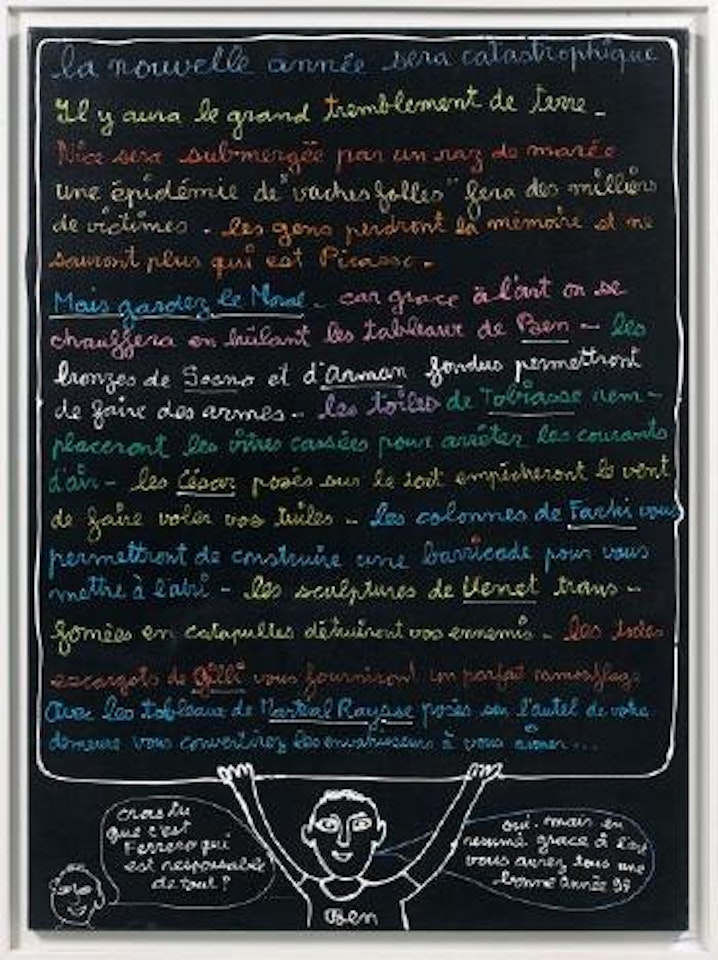 la nouvelle année sera catastrophique
Il y aura le grand tremblement de terre -
Nice sera submergée par un raz de marée
une épidémie de "vaches folles" fera des milliers
de victimes - les gens perdront la mémoire et ne
sauront plus qui est Picasso -
Mais gardez le Moral - car grace à l'art on se
chauffera en brûlant les tableaux de Ben - les
bronzes de Sosno et d'Arman fondus permettront
de faire des armes - les toiles de Tobiasse rem-
placeront les vitres cassées pour arrêter les courants
d'air - les César posés sur le toit empêcheront le vent
de faire voler vos tuiles - les colonnes de Farhi vous
permettront de construire une barricade pour vous
mettre à l'abri - les sculptures de Venet trans -
fomées en catapultes détruiront vos ennemis - les
escargots de Gilli vous fourniront un parfait camouflage
Avec les tableaux de Martial Raysse posés sur l'autel de votre
demeure vous convertirez les envahisseurs à vous aimer...
crois tu
que c'est
Ferrero qui
est responsable
de tout ?
oui - mais en
resumé grace à l'art
vous aurez tous une
bonne année 97
Ben